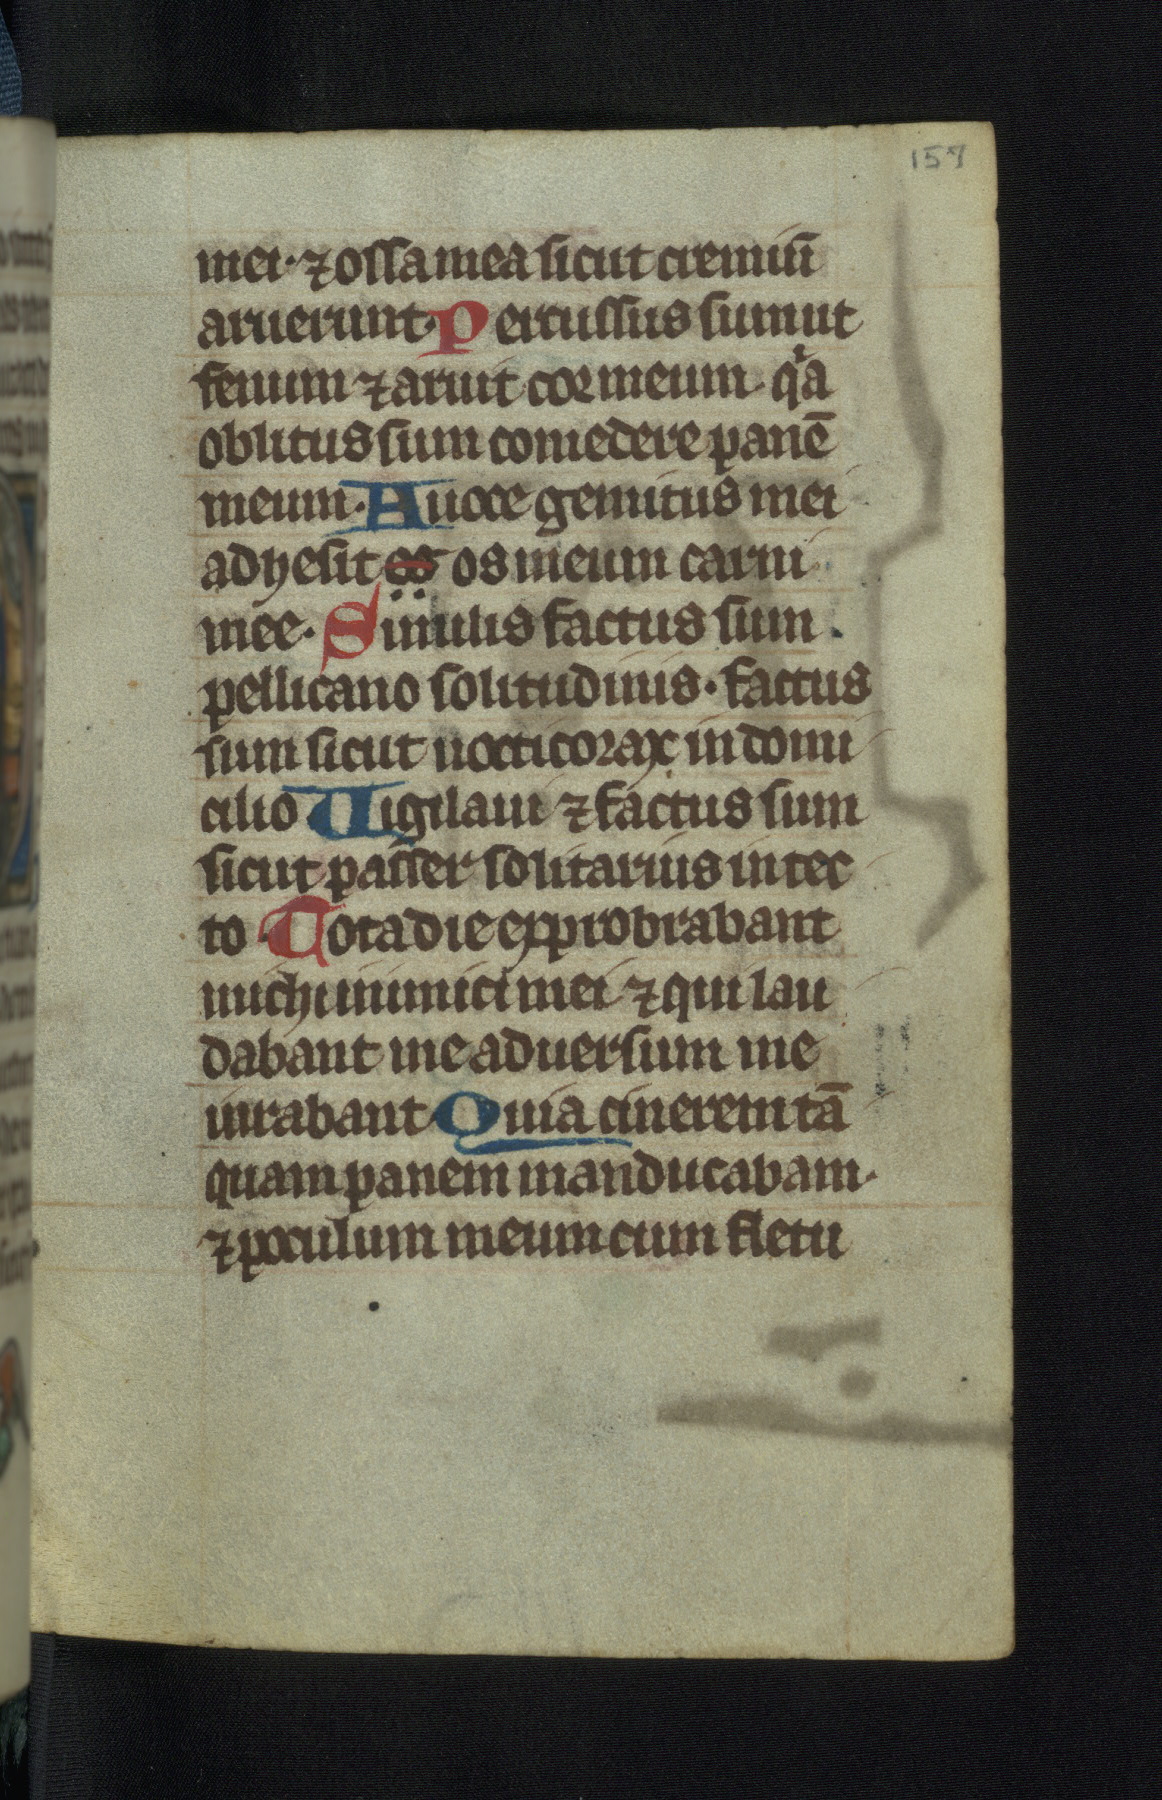 157
mei· ⁊ ossa mea sicut cremiū
aruerunt· Percussus sum ut
fenum ⁊ aruit cor meum· qͥa
oblitus sum comedere panē
meum· A uoce gemitus mei
adhesit os os meum carni
mee· Similis factus sum
pellicano solitudinis· factus
sum sicut nocticorax in domi
cilio Uigilaui ⁊ factus sum
sicut passer solitarius in tec
to· Tota die exprobrabant
michi inimici mei ⁊ qui lau
dabant me aduersum me
iurabant Quia cinerem tā
quam panem manducabam·
⁊ poculum meum cum fletu